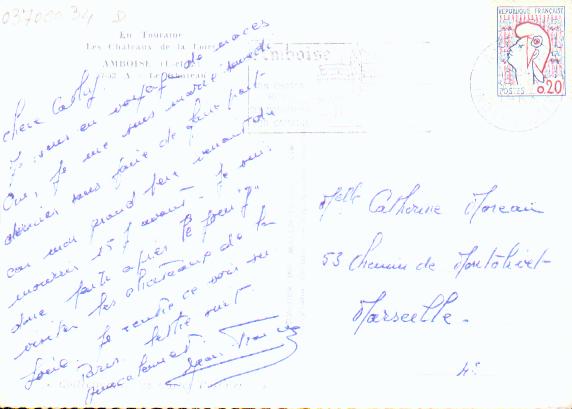 03700034 D
En Touraine
Les Châteaux de la Loire
AMBOISE
Amboise
REPUBLIQUE FRANÇAISE
POSTES 0,20
Chère Cathy
Je suis en voyage de noces
Oui, je me suis marié samedi
dernier sans faire de faire part
car mon grand père venait de
mourir 15 j avant. Je suis
donc parti après le
visiter les châteaux de la
Loire. Je rentre ce soir
Bises. lettre suit
Amicalement.
Melle Catherine Moreau
53 Chemin de Montolivet
Marseille.
4e